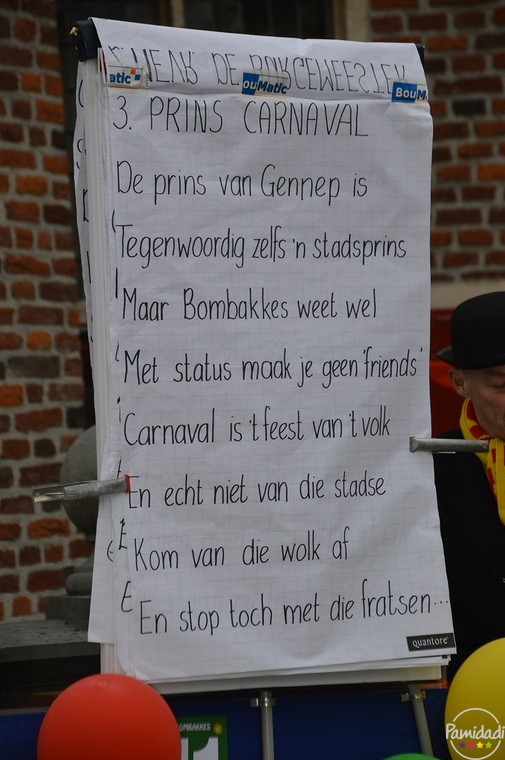 HENR DE BORGEWEESTER
atic
ouMatic
BouM
3. PRINS CARNAVAL
De prins van Gennep is
Tegenwoordig zelfs 'n stadsprins
Maar Bombakkes weet wel
Met status maak je geen 'friends'
Carnaval is 't feest van 't volk
En echt niet van die stadse
Kom van die wolk af
En stop toch met die fratsen...
quantore
OMBAKKES
Pamidadi